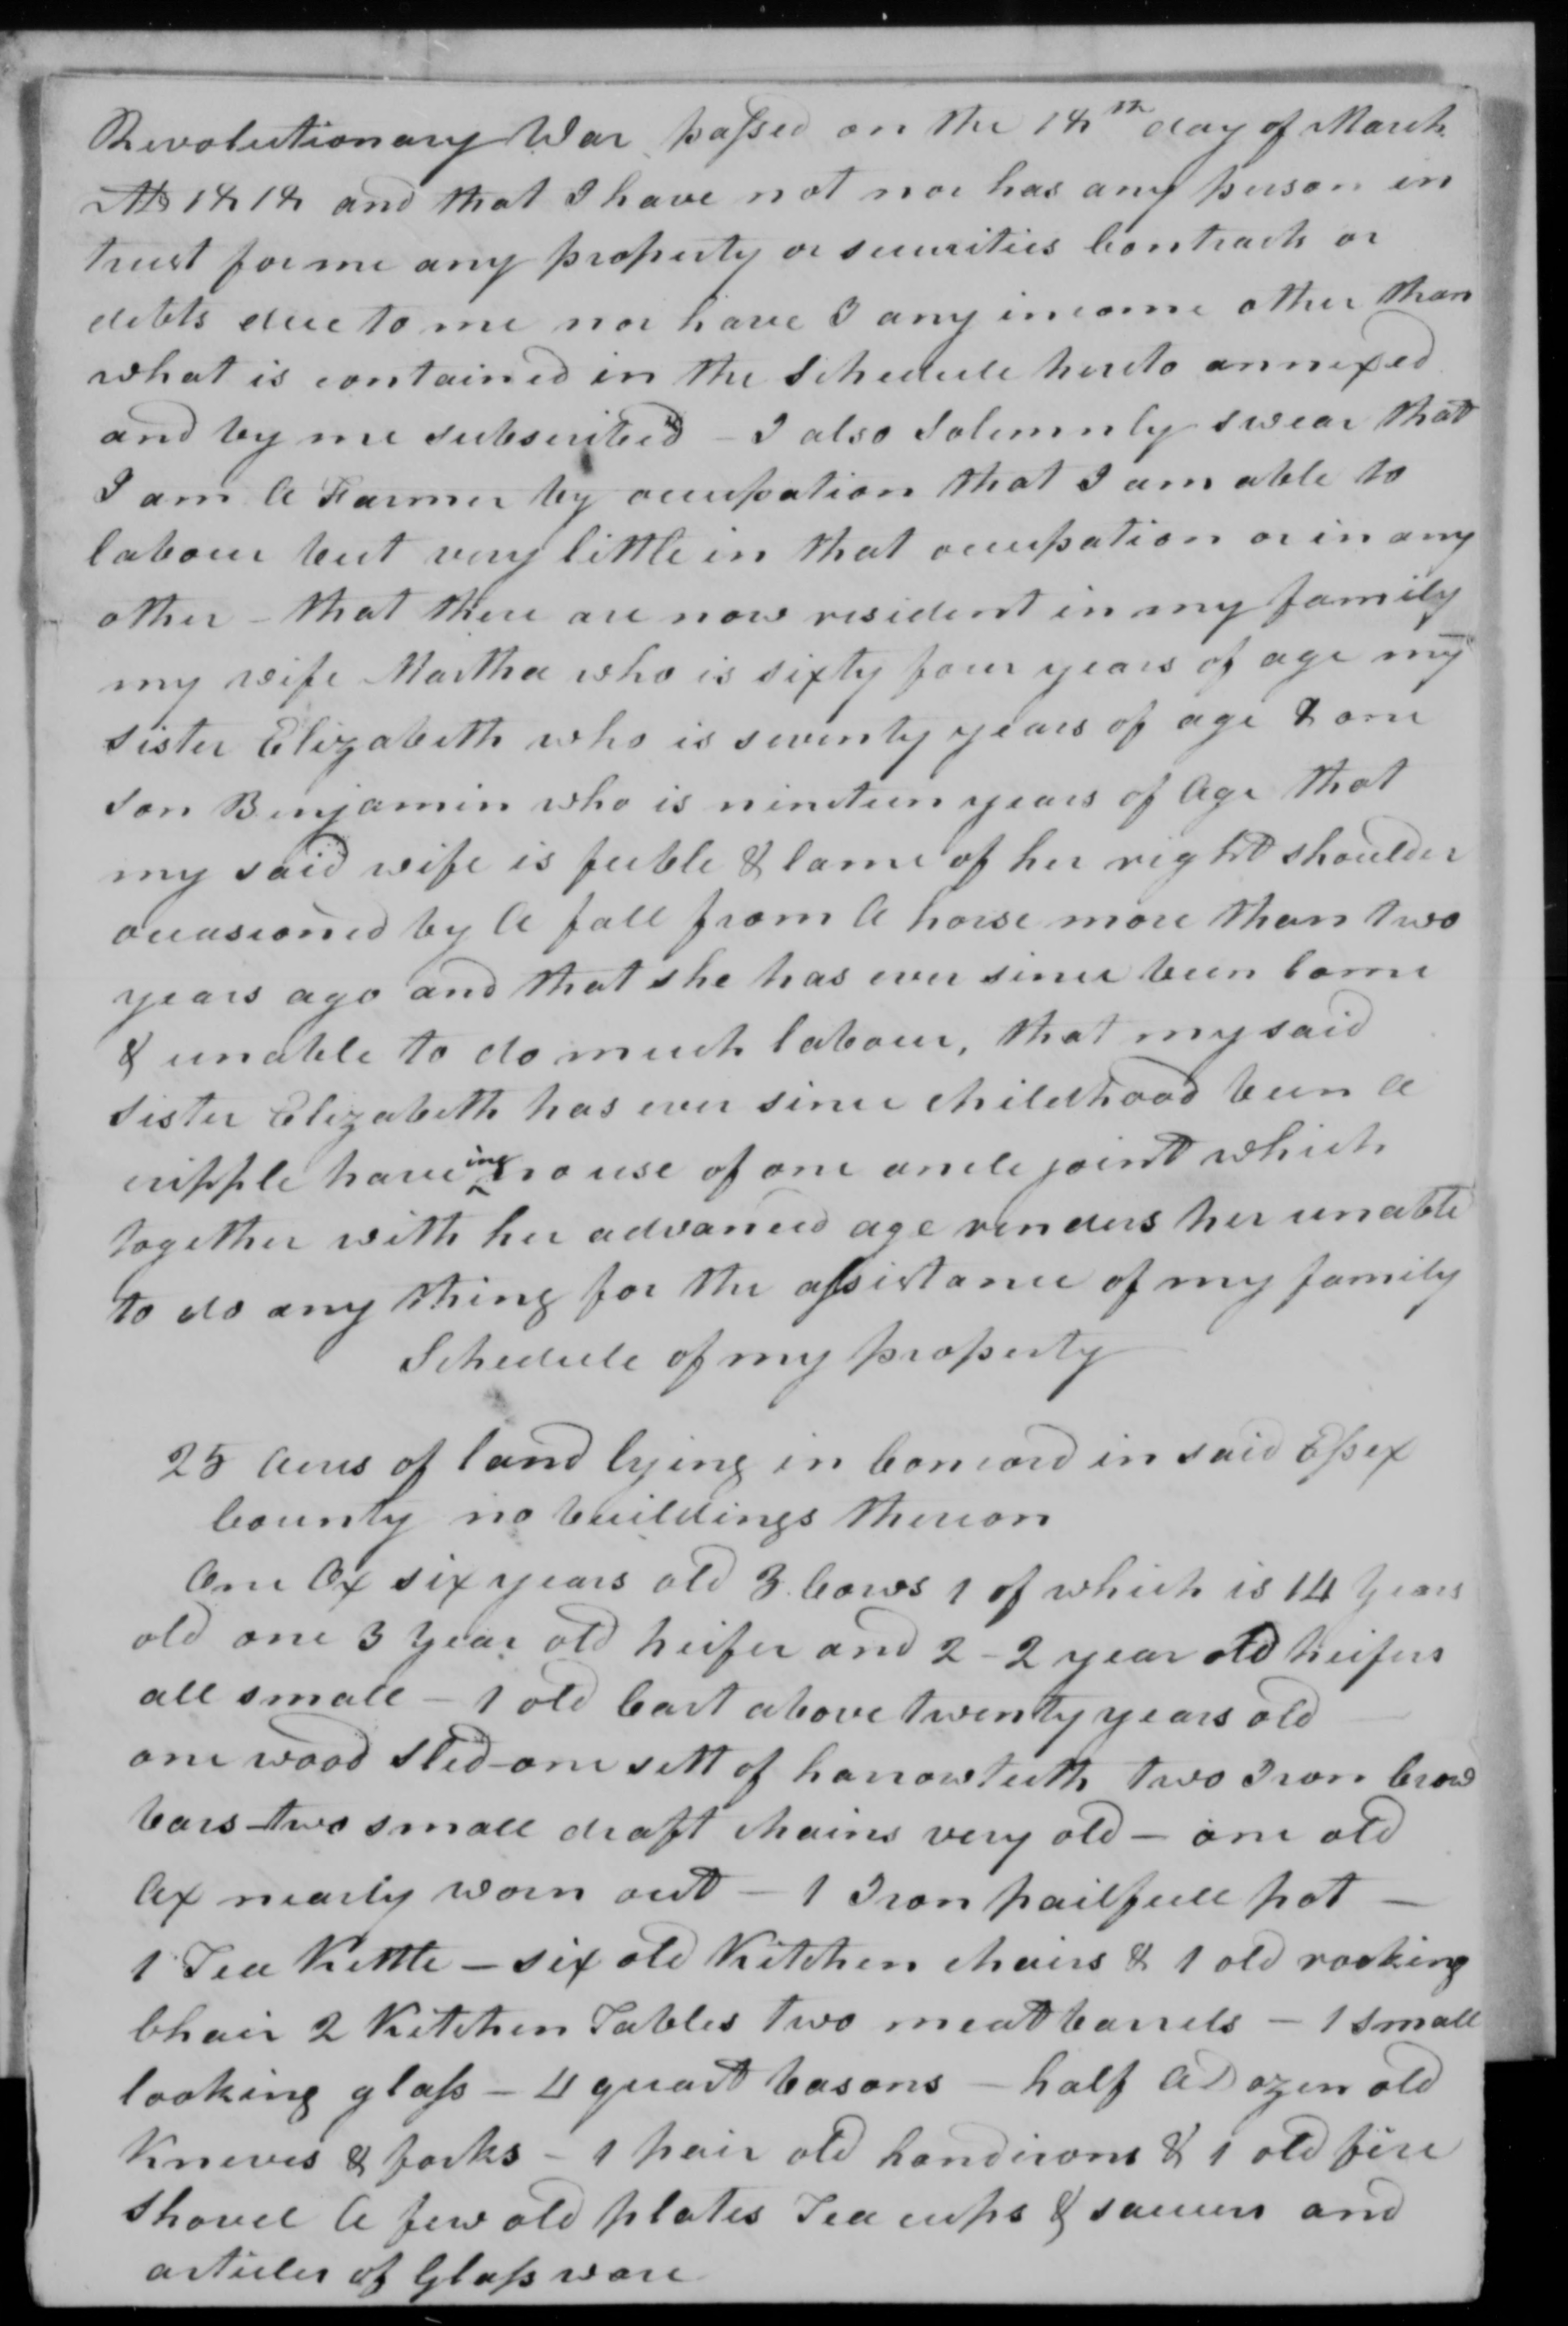 Revolutionary War passed on the 18th day of March
AD 1818 and that I have not nor has any person in
trust for me any property or securities Contracts or
debts due to me nor have I any income other than
what is contained in the Schedule hereto annexed
and by me subscribed - I also Solemnly swear that
I am A Farmer by occupation that I am able to
labour but very little in that occupation or in any
other - that there are now resident in my family
my wife Martha who is sixty four years of age my
sister Elizabeth who is seventy years of age & one
son Benjamin who is nineteen years of Age that
my said wife is feeble & lame of her right shoulder
occasioned by A fall from A horse more than two
years ago and that she has ever since been lame
& unable to do much labour, that my said
sister Elizabeth has ever since childhood been A
cripple haveing no use of one ancle joint which
together with her advanced age renders her unable
to do any thing for the assistance of my family
Schedule of my property
25 Acres of land lying in Concord in said Essex
County no buildings thereon
One Ox six years old 3 Cows 1 of which is 14 Years
old one 3 Year old heifer and 2 - 2 year old heifers
all small - 1 old Cart above twenty years old
one wood Sled - one sett of harrowteeth two Iron Crow
bars - two small draft chains very old - one old
Ax nearly worn out - 1 Iron pailfull pot -
1 Tea Kettle - six old Kitchen chairs & 1 old rocking
Chair 2 Kitchen Tables two meat barrels - 1 small
looking glass - 4 quart basons - half A Dozen old
Kneves & forks - 1 pair old handirons & 1 old fire
Shovel A few old plates Tea cups & saucers and
articles of Glass ware